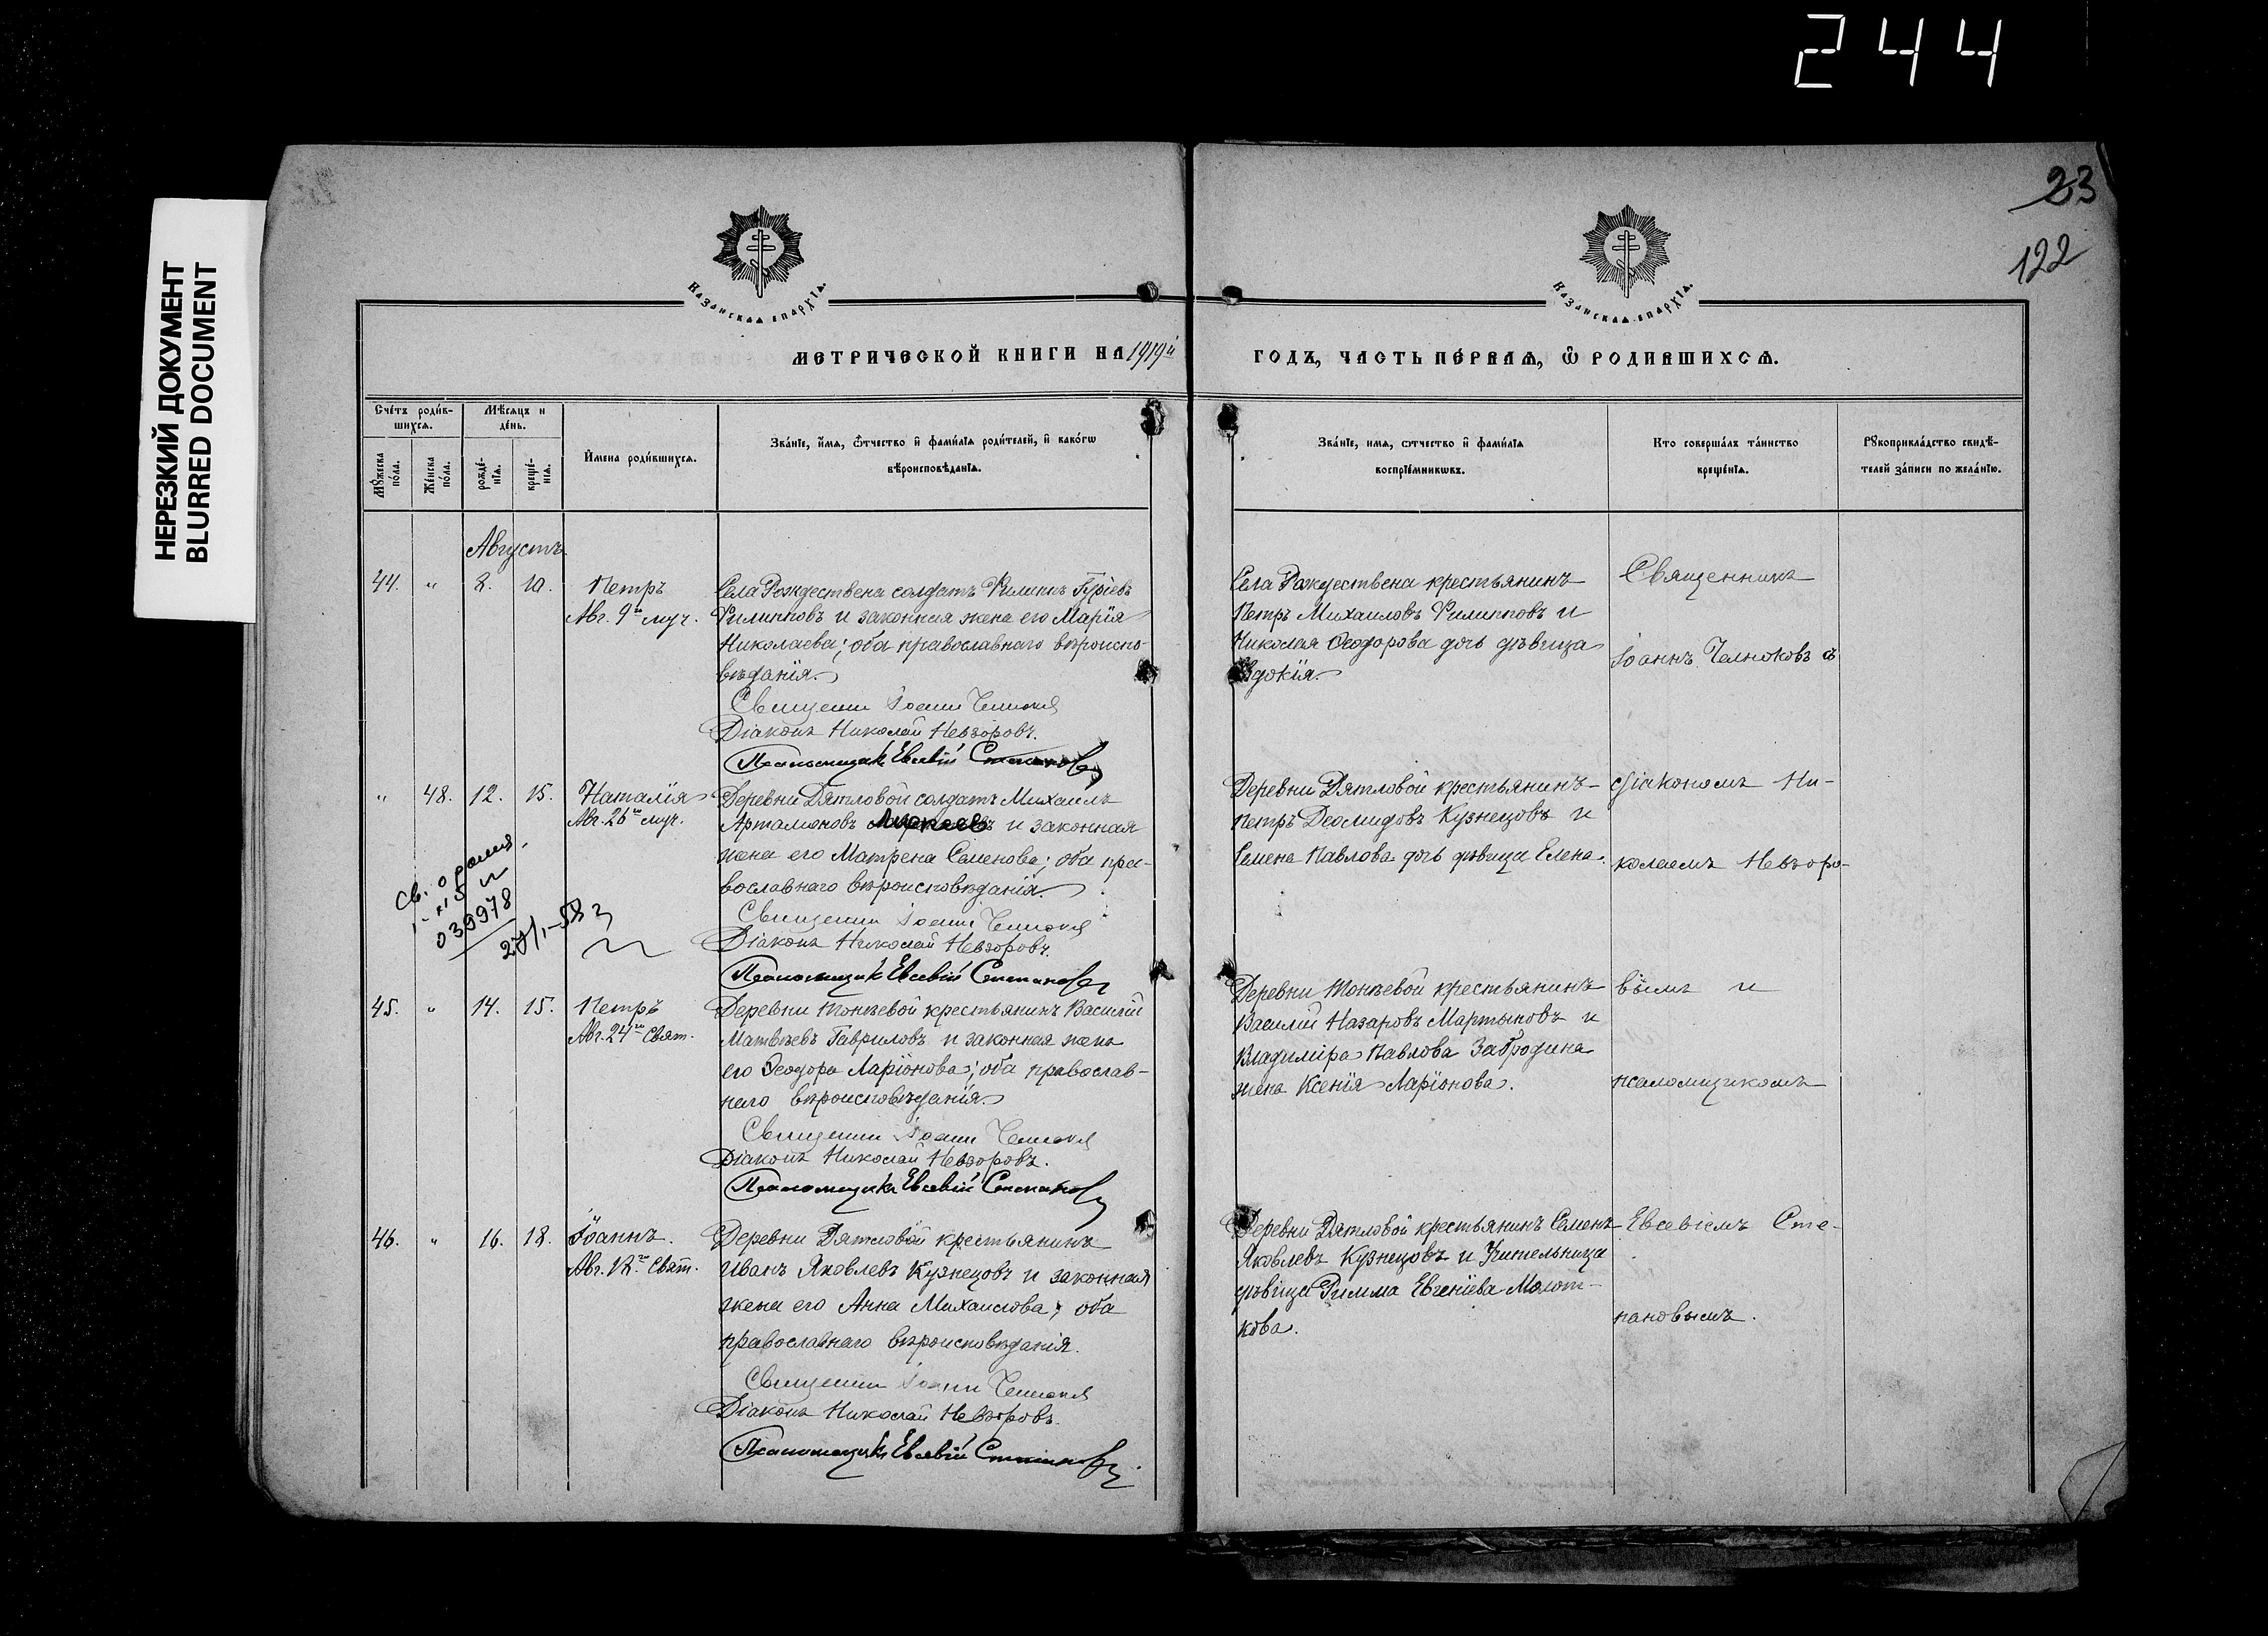 244
НЕРЕЗКИЙ ДОКУМЕНТ
BLURRED DOCUMENT
23
122
Казанская епархїѧ.
Казанская епархїѧ.
МЕТРИЧЕСКОЙ КНИГИ НА 1919й
ГОДЪ, ЧАСТЬ ПЕ́РВАѦ, Ѽ РОДИВШИХСѦ.
Сче́тъ роди́в-
шихсѧ.
Мѣ́сѧцъ и
де́нь.
Мꙋ́жеска
по́ла.
Же́нска
по́ла.
рожде́-
нїѧ.
креще́-
нїѧ.
И҆мена роди́вшихсѧ.
Зва́нїе, и҆́мѧ, ѻ҆́тчество и҆ фами́лїѧ роди́телей, и҆ како́гѡ
вѣроисповѣ́данїѧ.
Зва́нїе, имѧ, ѻтчество и҆ фами́лїѧ
воспрїе́мникѡвъ.
Кто соверша́лъ та́инство
креще́нїѧ.
Рꙋкоприкла́дство свидѣ́-
телей за́писи по жела́нїю.
Августъ
44. " 8. 10. Петръ
Авг. 9го муч.
Села Рождествена солдатъ Филиппъ Гурїевъ
Филипповъ и законная жена его Марїя
Николаева; оба православнаго вѣроиспо-
вѣданїя.
Священни Іоанн Челноковъ
Дїаконъ Николай Невзоровъ.
Псаломщикъ Евсевїй Степановъ
Села Рождествена крестьянинъ
Петръ Михаиловъ Филипповъ и
Николая Ѳеодорова дочь дѣвица
Евдокїя.
Священникъ
Іоаннъ Челноковъ съ
" 48. 12. 15. Наталїя
Авг. 26го муч.
Деревни Дятловой солдатъ Михаилъ
Артамоновъ и законная
жена его Матрена Семенова; оба пра-
вославнаго вѣроисповѣданїя.
Священни Іоанн Челноковъ
Дїаконъ Николай Невзоровъ.
Псаломщикъ Евсевїй Степановъ
Деревни Дятловой крестьянинъ
Петръ Деомидовъ Кузнецовъ и
Семена Павлова дочь дѣвица Елена.
дїакономъ Ни-
колаемъ Невзоро-
Св. о
039978
45. " 14. 15. Петръ
Авг. 24го Свят.
Деревни Тонѣевой крестьянинъ Василїй
Матвѣевъ Гавриловъ и законная жена
его Ѳеодора Ларїонова; оба православ-
наго вѣроисповѣданїя.
Священни Іоанн Челноковъ
Дїаконъ Николай Невзоровъ.
Псаломщикъ Евсевїй Степановъ
Деревни Тонѣевой крестьянинъ
Василїй Назаровъ Мартыновъ и
Владимїра Павлова Забродина
жена Ксенїя Ларїонова.
вымъ и
псаломщикомъ
46. " 16. 18. Іоаннъ.
Авг. 18го Свят.
Деревни Дятловой крестьянинъ
Иванъ Яковлевъ Кузнецовъ и законная
жена его Анна Михаилова; оба
православнаго вѣроисповѣданїя.
Священни Іоанн Челноковъ
Дїаконъ Николай Невзоровъ.
Псаломщикъ Евсевїй Степановъ
Деревни Дятловой крестьянинъ Семенъ
Яковлевъ Кузнецовъ и Учительница
дѣвица Римма Евгенїева Молот-
кова.
Евсевїемъ Сте-
пановымъ.